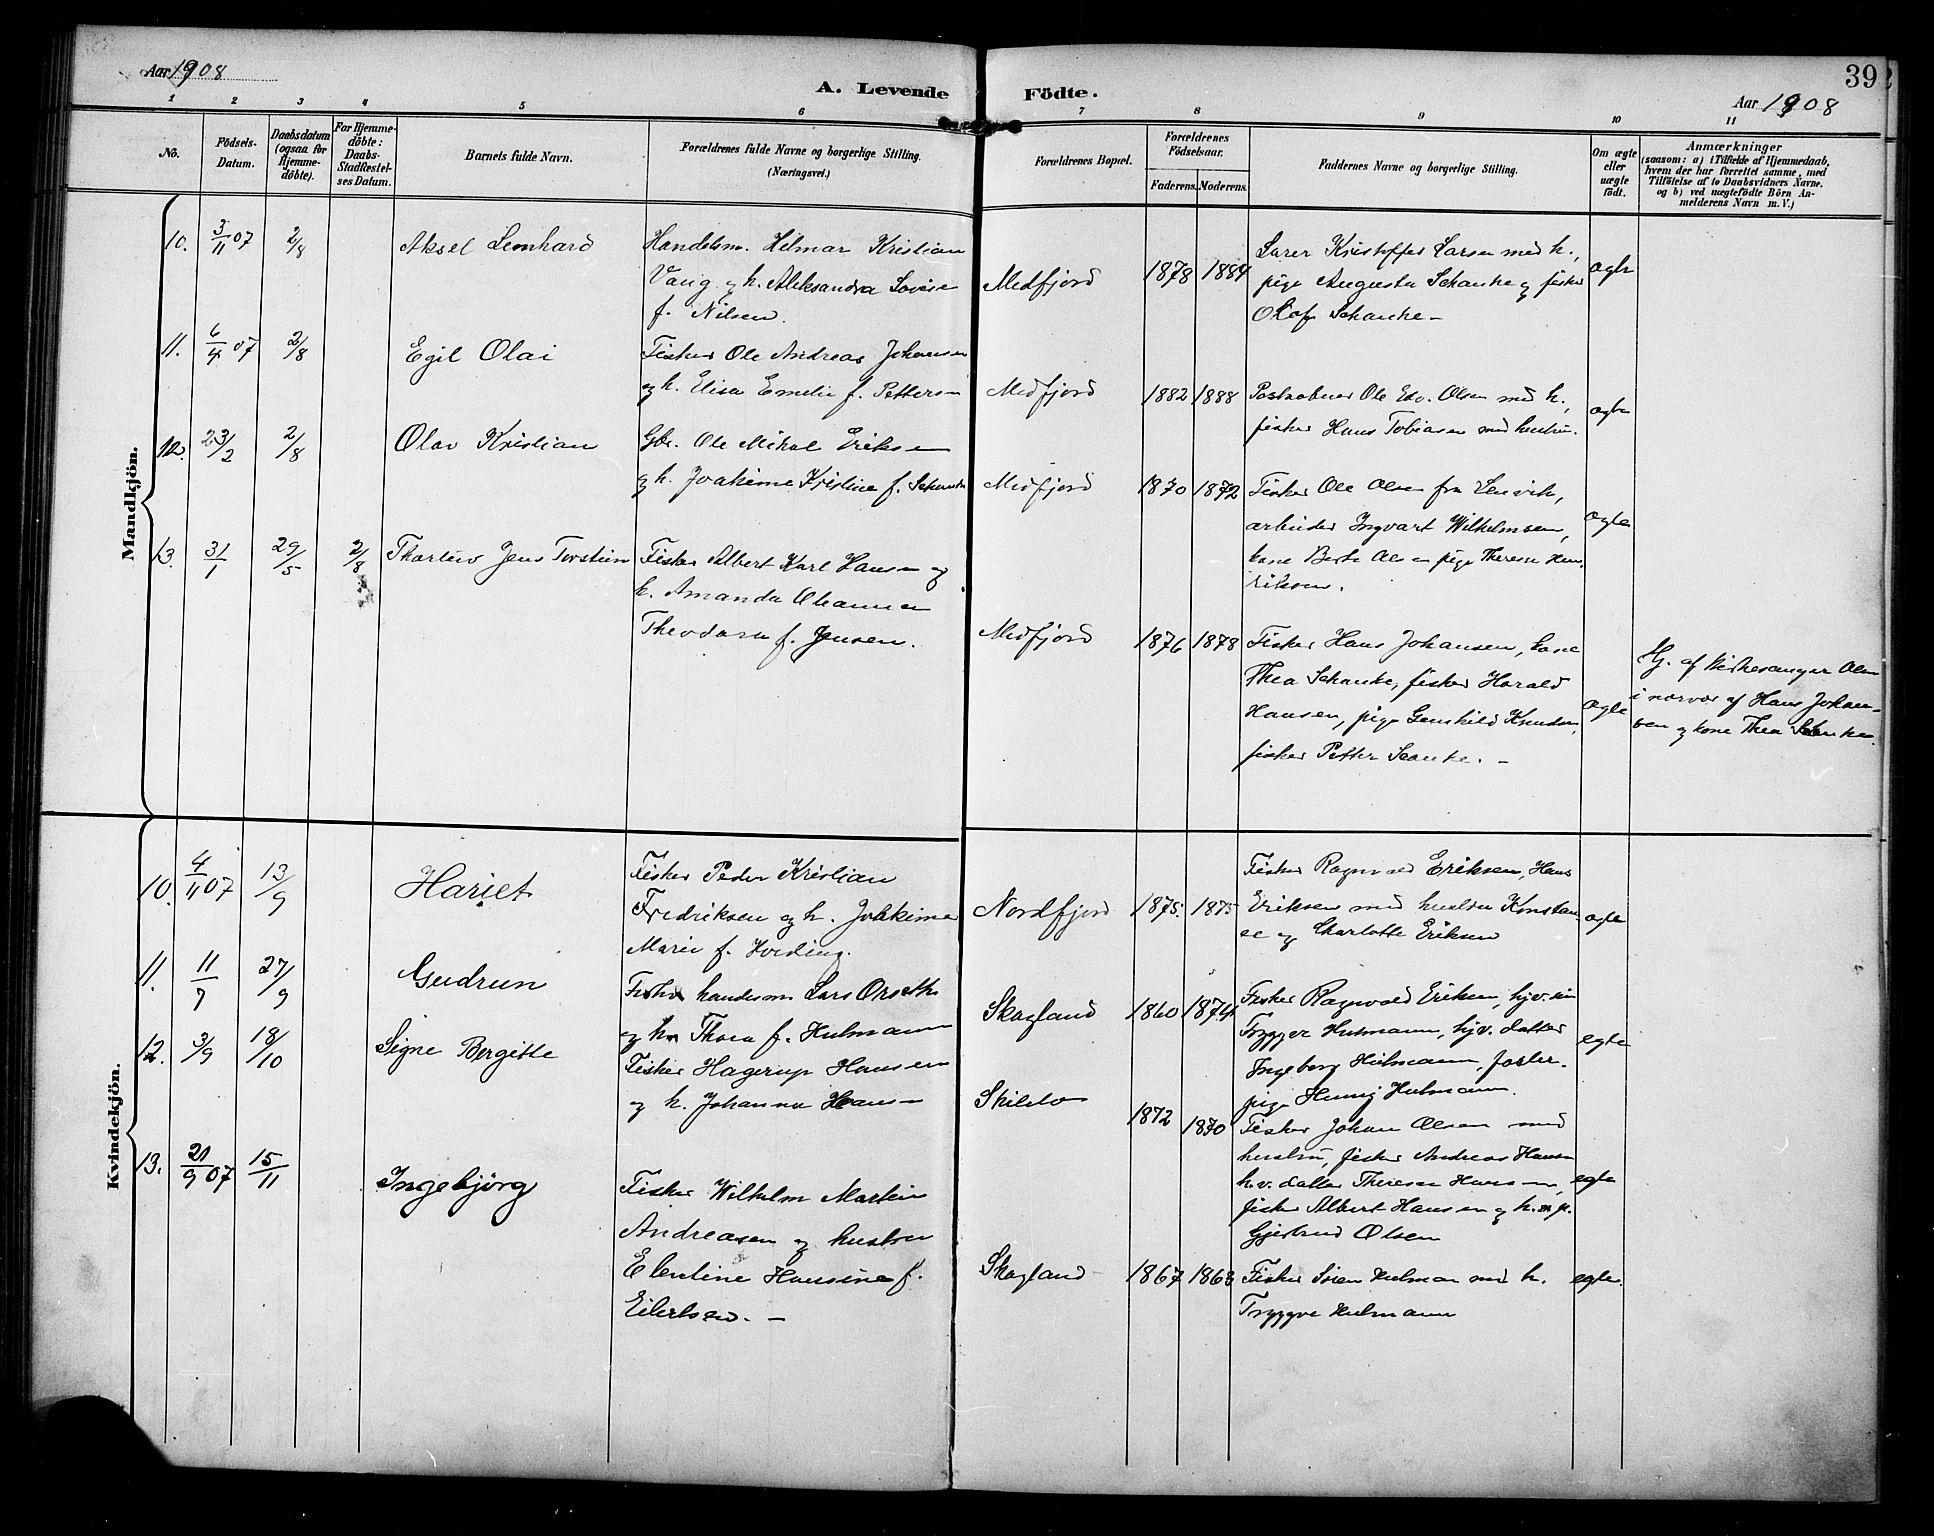 Aar 1908
A. Levende
Födte.
39
Aar 1908
1 2 3 4 5 6 7 8 9 10 11
No.
Födsels-
Datum.
Daabsdatum
(ogsaa for
Hjemme-
döbte).
For Hjemme-
döbte:
Daabs-
Stadfæstel-
ses Datum.
Barnets fulde Navn.
Forældrenes fulde Navne og borgerlige Stilling.
(Næringsvei.)
Forældrenes Bopæl.
Forældrenes
Födselsaar.
Faderens. Moderens.
Faddernes Navne og borgerlige Stilling.
Om ægte
eller
uægte
födt.
Anmærkninger
(saasom: a) i Tilfælde af Hjemmedaab,
hvem der har forrettet samme, med
Tilföielse af to Daabsvidners Navne,
og b) ved uægtefödte Börn An-
melderens Navn m. V.)
Mandkjön.
10. 3/11 07 2/8 Aksel Leonhard
Handelsm. Hilmar Kristian
Vang og h. Aleksandra Lovise
f. Nilsen.
Medfjord 1878 1884
Lærer Kristoffer Larsen med h.,
pige Augusta Schanke og fisker
Olaf Schanke –
ægte
11. 6/4 07 2/8 Egil Olai
Fisker Ole Andreas Johansen
og h. Elisa Emelie f. Pettersen
Medfjord 1882 1888
Postaabner Ole Edv. Olsen med h.,
fisker Hans Tobiasen med hustru.
ægte
12. 23/2 2/8 Olav Kristian
Gbr. Ole Mikal Eriksen
og h. Joakime Kristine f. Schanke
Medfjord 1870 1872
Fisker Ole Olsen fra Lenvik,
arbeider Ingvart Wilhelmsen,
kone Berte Olsen pige Therese Hen-
riksen.
ægte
13. 31/1 29/5 2/8 Thorleiv Jens Torstein
Fisker Albert Karl Hansen og
h. Amanda Oleanna
Theodora f. Jensen.
Medfjord 1876 1878
Fisker Hans Johansen, kone
Thea Schanke, fisker Harald
Hansen, pige Gunhild Knudsen,
fisker Petter Scanke. –
ægte
Hj. af kirkesanger Olsen
i nærvær af Hans Johan-
sen og kone Thea Schanke.
Kvindekjön.
10. 4/11 07 13/9 Hariet
Fisker Peder Kristian
Fredriksen og h. Joakime
Marie f. Hveding.
Nordfjord 1875. 1875
Fisker Ragnvald Eriksen, Hans
Eriksen med hustru Konstan-
se og Charlotte Eriksen
ægte
11. 11/7 27/9 Gudrun
handesm. Lars Orseth
og h. Thora f. Hulmann
Skagland 1860 1874
Fisker Ragnvald Eriksen, hjv. søn
Trygve Hulmann, hjv. datter
Ingeborg Hulmann, foster-
pige Hulmann.
egte
12. 3/9 18/10 Signe Bergitte
Fisker Hagerup Hansen
og h. Johanna Hansen
1872 1870
Fisker Johan Olsen med
hustru, fisker Andreas Hansen
h.v. datter Therese Hansen,
fisker Albert Hansen og h. p.
Gjertrud Olsen
egte
13. 21/9 07 15/11 Ingebjörg
Fisker Wilhelm Martin
Andreasen og hustru
Elentine Hansine f.
Eilertsen. –
Skagland 1867 1863
Fisker Sören Hulman med h.
Tryggve Hulmann
egte.